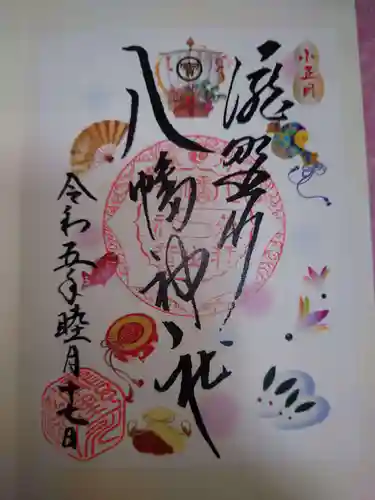 小正月
瀧野川
八幡神社
令和五年睦月十七日